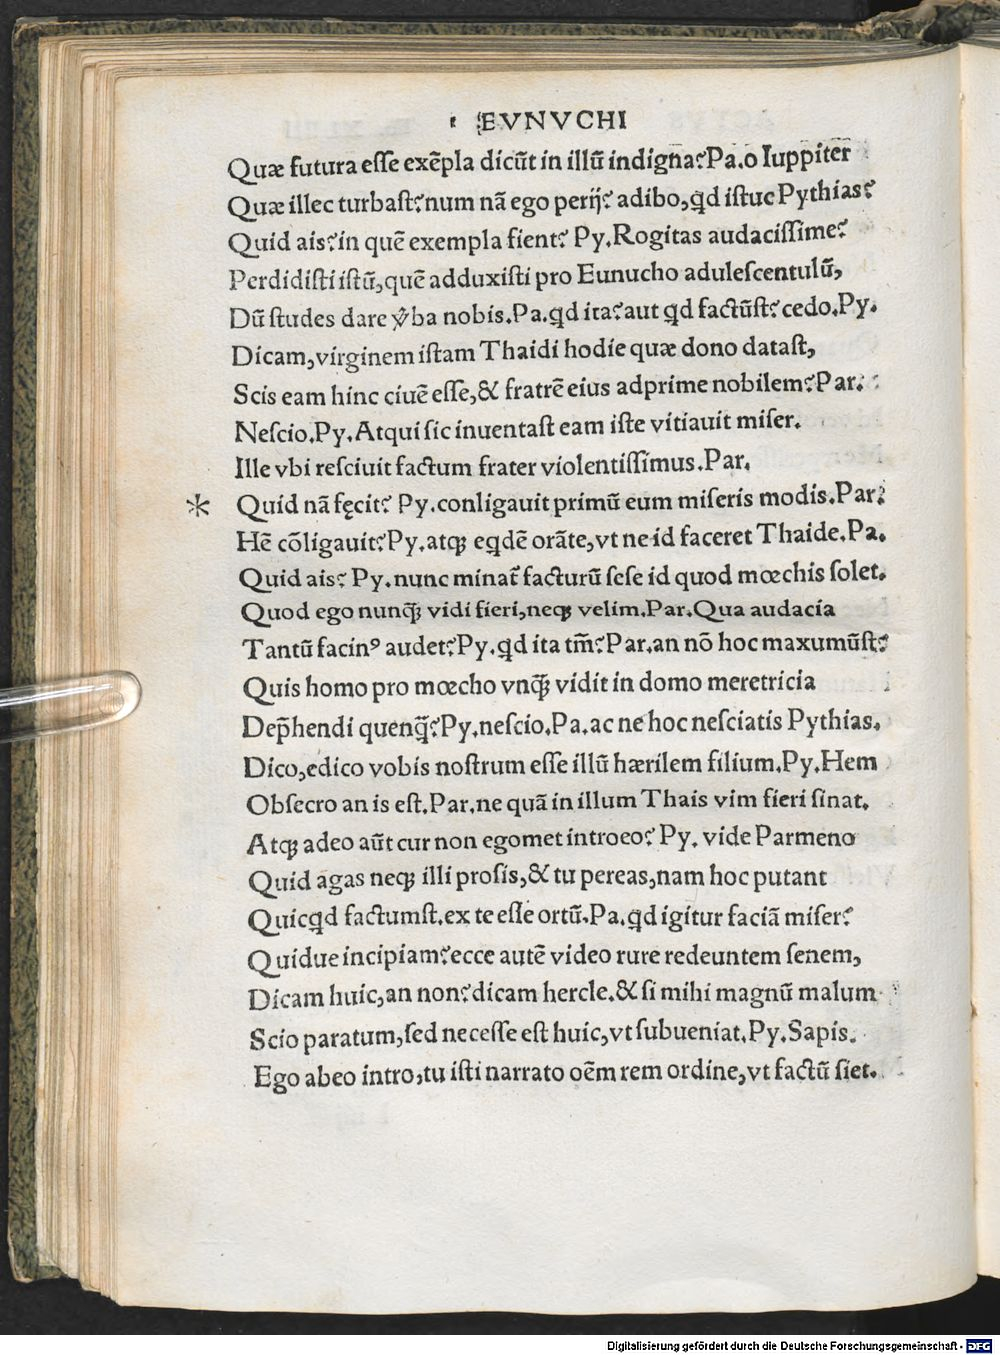 EVNVCHI
Quæ futura eſſe exẽpla dicũt in illũ indigna? Pa.o Iuppiter
Quæ illec turbaſt? num nã ego perij? adibo, qd iſtuc Pythias?
Quid ais? in quẽ exempla fient? Py. Rogitas audaciſſime?
Perdidiſti iſtũ, quẽ adduxiſti pro Eunucho aduleſcentulũ,
Dũ ſtudes dare v̉ba nobis. Pa. qd ita? aut qd factũſt? cedo. Py.
Dicam, virginem iſtam Thaidi hodie quæ dono dataſt,
Scis eam hinc ciuẽ eſſe, & fratrẽ eius adprime nobilem? Par.
Neſcio. Py. Atqui ſic inuentaſt eam iſte vitiauit miſer.
Ille vbi reſciuit factum frater violentiſſimus. Par.
* Quid nã fęcit? Py. conligauit primũ eum miſeris modis. Par?
Hẽ cõligauit? Py. atqꝫ eqdẽ orãte, vt ne id faceret Thaide. Pa.
Quid ais? Py. nunc minat᷑ facturũ ſeſe id quod mœchis ſolet.
Quod ego nunqꝫ̃ vidi fieri, neqꝫ velim. Par. Qua audacia
Tantũ facinꝰ audet? Py. qd ita tm̃? Par. an nõ hoc maxumũſt?
Quis homo pro mœcho vnqꝫ̃ vidit in domo meretricia
Dep̃hendi quenq̃? Py. neſcio. Pa. ac ne hoc neſciatis Pythias.
Dico, edico vobis noſtrum eſſe illũ hærilem filium. Py. Hem
Obſecro an is eſt. Par. ne quã in illum Thais vim fieri ſinat.
Atqꝫ adeo aũt cur non egomet introeo? Py. vide Parmeno
Quid agas neqꝫ illi proſis, & tu pereas, nam hoc putant
Quicqd factumſt. ex te eſſe ortũ. Pa. qd igitur faciã miſer?
Quidue incipiam? ecce autẽ video rure redeuntem ſenem,
Dicam huic, an non? dicam hercle. & ſi mihi magnũ malum
Scio paratum, ſed neceſſe eſt huic, vt ſubueniat. Py. Sapis.
Ego abeo intro, tu iſti narrato oẽm rem ordine, vt factũ ſiet.
Digitalisierung gefördert durch die Deutsche Forschungsgemeinschaft - DFG